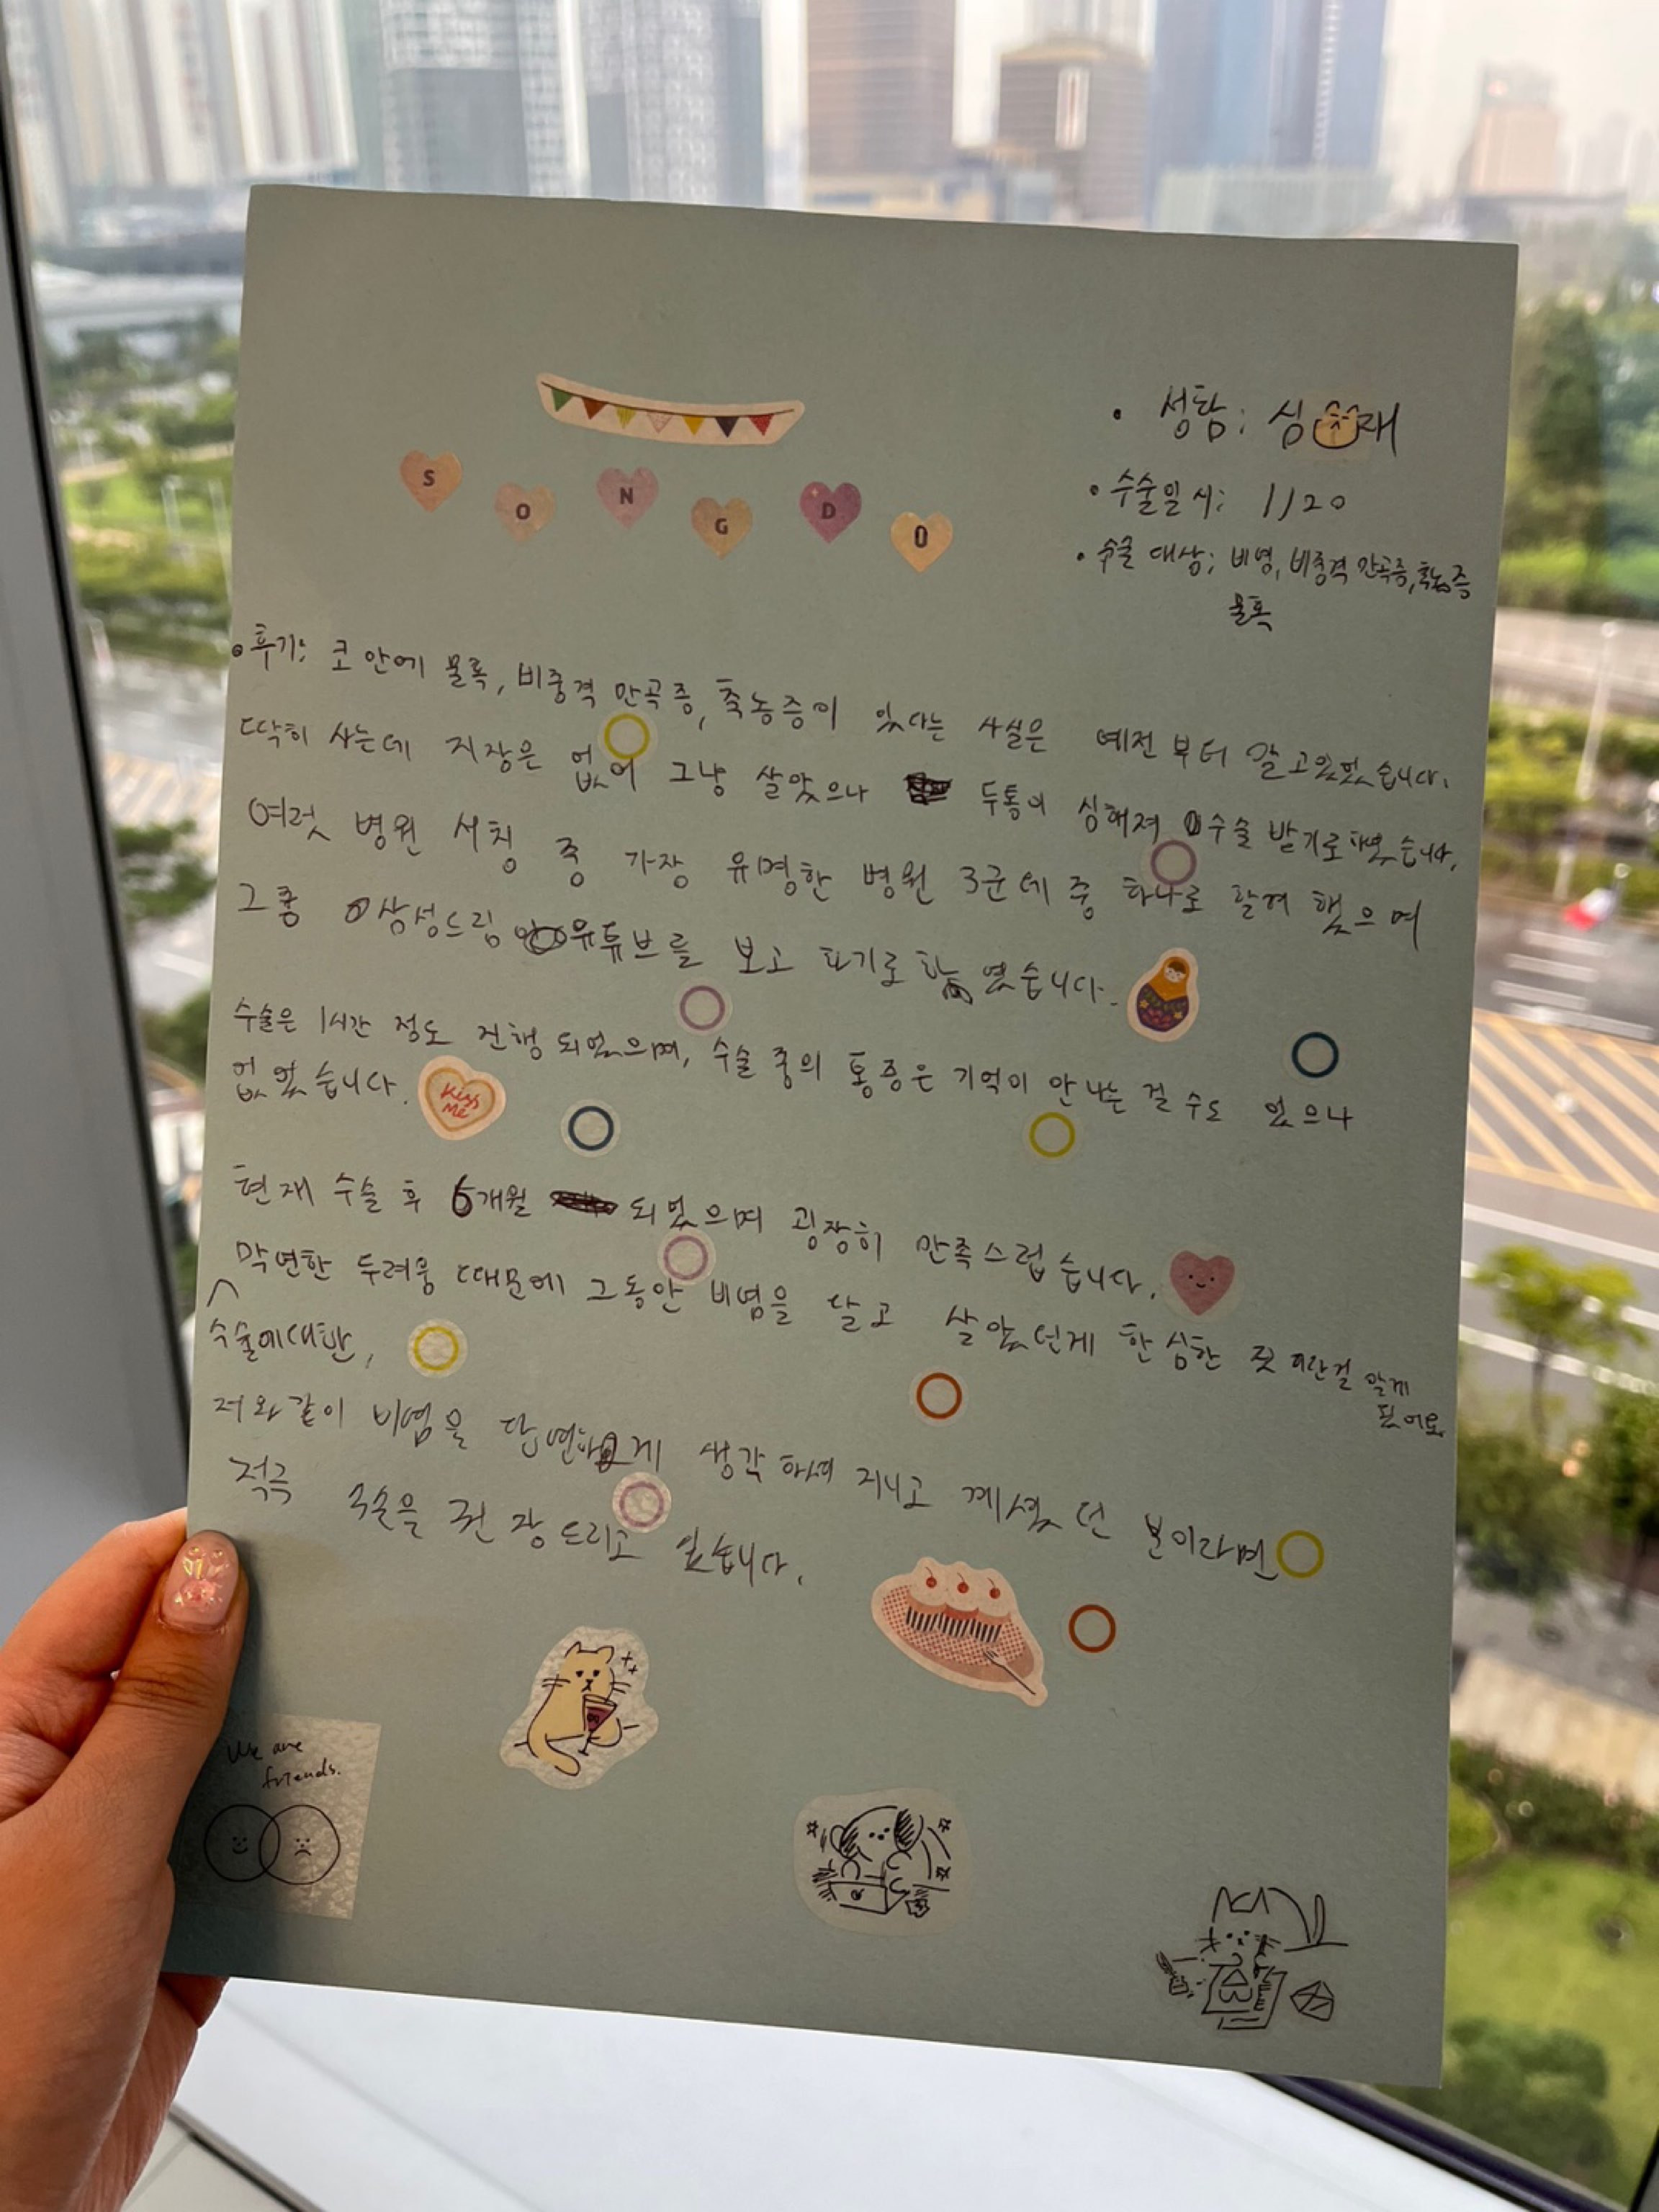 SONGDO
• 성함: 심 재
• 수술일시: 1/20
• 수술 대상: 비염, 비중격 만곡증, 축농증
물혹
• 후기: 코 안에 물혹, 비중격 만곡증, 축농증이 있다는 사실은 예전부터 알고있었습니다.
딱히 사는데 지장은 없어 그냥 살았으나 두통이 심해져 수술 받기로 했습니다.
여럿 병원 서칭 중 가장 유명한 병원 3군데 중 하나로 할려 했으며
그중 삼성드림 유튜브를 보고 하기로 하였습니다.
수술은 1시간 정도 진행 되었으며, 수술 중의 통증은 기억이 안나는 걸 수도 있으나
없었습니다.
Kiss Me
현재 수술 후 6개월 되었으며 굉장히 만족스럽습니다.
막연한 두려움 때문에 그동안 비염을 달고 살았던게 한심한 짓이란걸 알게
됬어요
수술에대한,
저와같이 비염을 당연하게 생각하며 지내고 계셨던 분이라면
적극 수술을 권장드리고 싶습니다.
We are
friends.